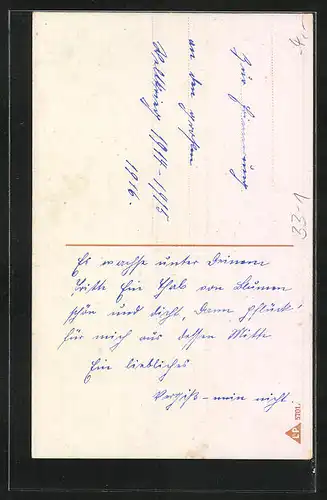 Zur Erinnerung
an den großen
Weltkrieg 1914-1915
1916.
Es wachse unter Deinem
Tritte Ein Thal von Blumen
schön und dicht, dann pflück'
für mich aus dessen Mitte
Ein liebliches
Vergiß-mein nicht.
4,-
33-1
L&P
5701